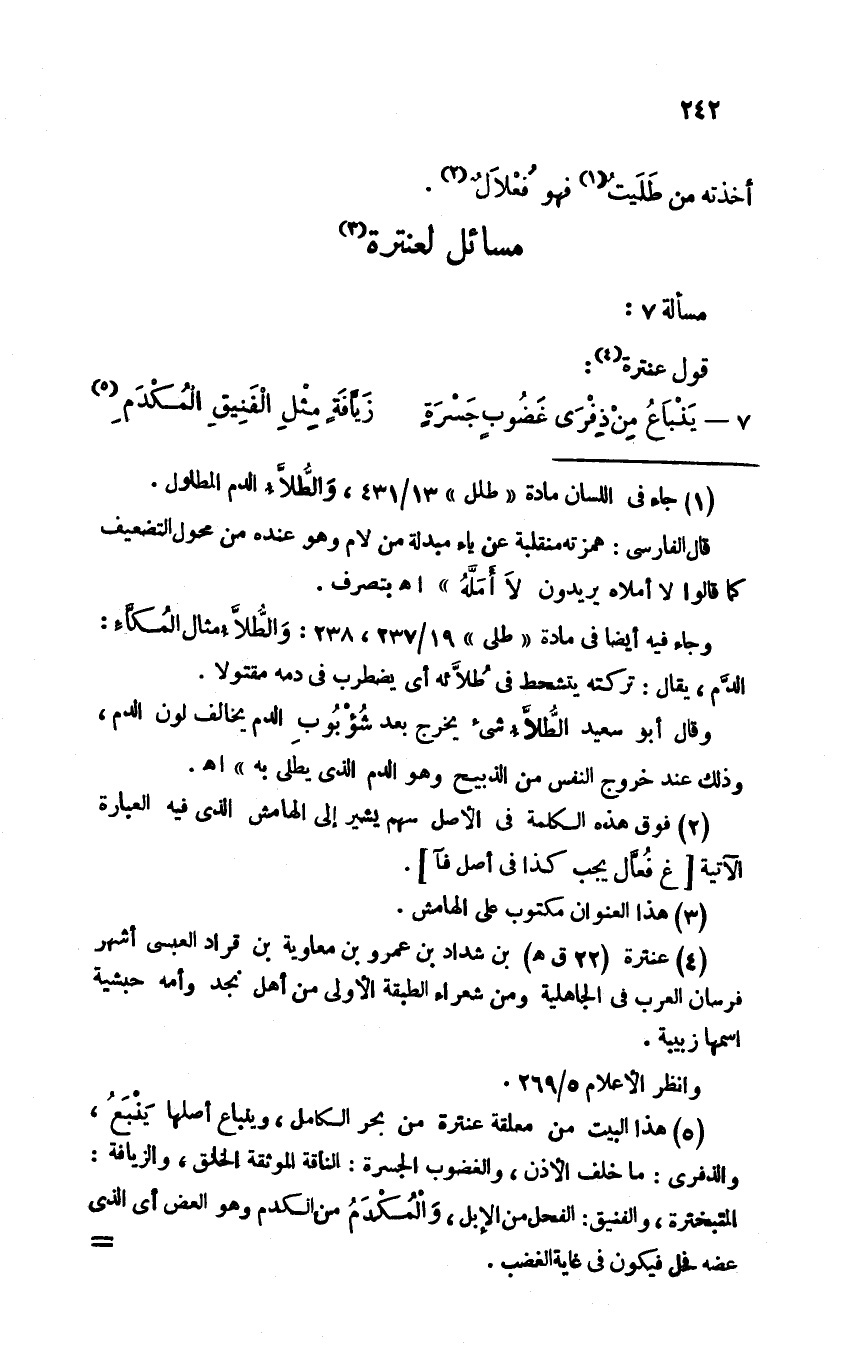 ٢٤٢
أخذته من طَلَيتُ(١) فهو فُعْلاَلٌ(٢) .
مسائل لعنترة(٣)
مسألة ٧ :
قول عنترة(٤):
٧ — يَنْبَاعُ مِنْ ذِفْرَى غَضُوبٍ جَسْرَةٍ زَيَّافَةٍ مِثْلِ الْفَنِيقِ الْمُكْدَمِ(٥)
(١) جاء فى اللسان مادة « طلل » ٤٣١/١٣ ، وَالطُّلاَّء الدم المطلول .
قال الفارسى : همزته منقلبة عن ياء مبدلة من لام وهو عنده من محول التضعيف
كما قالوا لا أملاه يريدون لاَ أَمَلَّهُ » اهـ بتصرف .
وجاء فيه أيضا فى مادة « طلى » ٢٣٧/١٩ ، ٢٣٨ : وَالطُّلاَّء مثال الْمُكَّاء :
الدَّم ، يقال : تركته يتشحط فى طُلاَّئه أى يضطرب فى دمه مقتولا .
وقال أبو سعيد الطُّلاَّء شىء يخرج بعد شُؤْبُوبِ الدم يخالف لون الدم ،
وذلك عند خروج النفس من الذبيح وهو الدم الذى يطلى به » اهـ .
(٢) فوق هذه الكلمة فى الأصل سهم يشير إلى الهامش الذى فيه العبارة
الآتية [ غ فُعَّال يجب كذا فى أصل فآ ] .
(٣) هذا العنوان مكتوب على الهامش .
(٤) عنترة (٢٢ ق هـ) بن شداد بن عمرو بن معاوية بن قراد العبسى أشهر
فرسان العرب فى الجاهلية ومن شعراء الطبقة الأولى من أهل نجد وأمه حبشية
اسمها زبيبة .
وانظر الأعلام ٢٦٩/٥ .
(٥) هذا البيت من معلقة عنترة من بحر الكامل ، وينباع أصلها يَنْبَعُ ،
والذفرى : ما خلف الأذن ، والغضوب الجسرة : الناقة الموثقة الخلق ، والزيافة :
المتبخترة ، والفنيق : الفحل من الإبل ، وَالْمُكْدَمُ من الكدم وهو العض أى الذى
عضه فحل فيكون فى غاية الغضب .
=